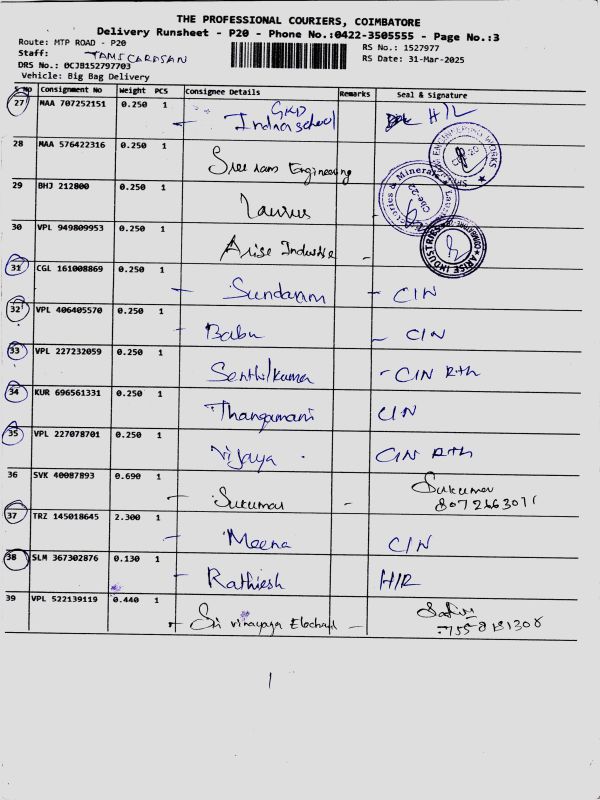 THE PROFESSIONAL COURIERS, COIMBATORE
Delivery Runsheet - P20 - Phone No.:0422-3505555 - Page No.:3
Route: MTP ROAD - P20 RS No.: 1527977
Staff: RS Date: 31-Mar-2025
DRS No.: 0CJB152797703
Vehicle: Big Bag Delivery
S No Consignment No Weight PCS Consignee Details Remarks Seal & Signature
27 MAA 707252151 0.250 1 GKD
Indian school H/L
28 MAA 576422316 0.250 1
Sree ram Engineering
ENGINEERING WORKS
29 BHJ 212800 0.250 1
Laurus
& Minerals
Cbe-22
30 VPL 949809953 0.250 1
Arise Industrie -
ARISE INDUSTRIES
31 CGL 161008869 0.250 1
Sundaram - C/N
32 VPL 406405570 0.250 1
Babu - C/N
33 VPL 227232059 0.250 1
Senthilkumar - C/N Rth
34 KUR 696561331 0.250 1
Thangamani C/N
35 VPL 227078701 0.250 1
Vijaya C/N Rth
36 SVK 40087893 0.690 1
Sukumar - Sukumar
37 TRZ 145018645 2.300 1
Meena C/N
38 SLM 367302876 0.130 1
Rathiesh H/R
39 VPL 522139119 0.440 1
Sri vinayaga -